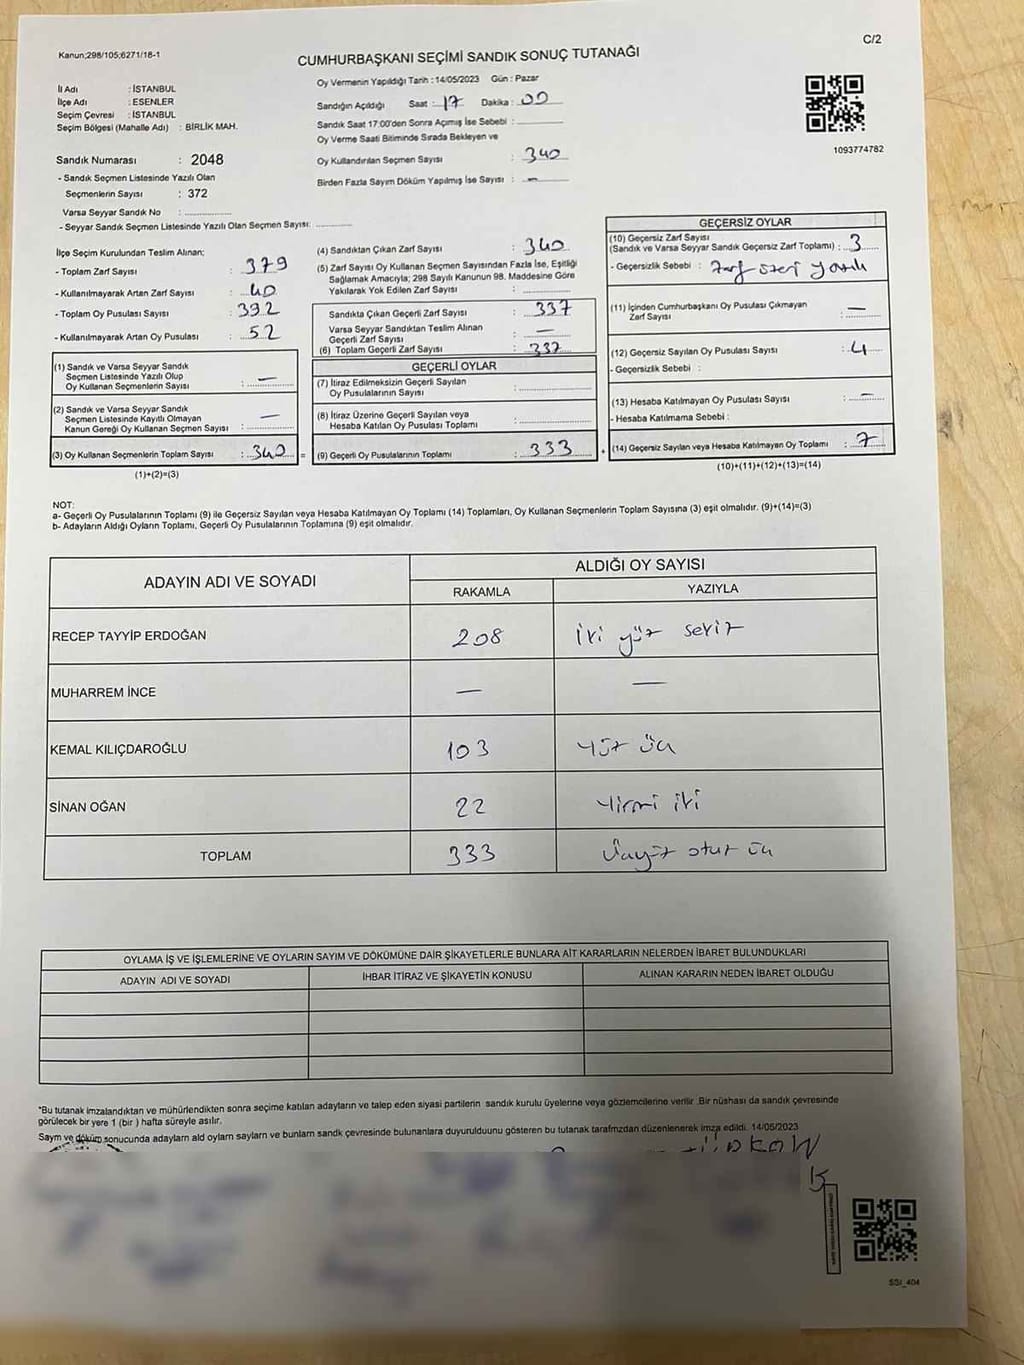 Kanun;298/105;6271/18-1
C/2
CUMHURBAŞKANI SEÇİMİ SANDIK SONUÇ TUTANAĞI
İl Adı : İSTANBUL
İlçe Adı : ESENLER
Seçim Çevresi : İSTANBUL
Seçim Bölgesi (Mahalle Adı) : BİRLİK MAH.
Sandık Numarası : 2048
- Sandık Seçmen Listesinde Yazılı Olan
Seçmenlerin Sayısı : 372
Varsa Seyyar Sandık No :
- Seyyar Sandık Seçmen Listesinde Yazılı Olan Seçmen Sayısı:
Oy Vermenin Yapıldığı Tarih : 14/05/2023 Gün : Pazar
Sandığın Açıldığı Saat : 17 Dakika : 00
Sandık Saat 17:00'den Sonra Açılmış İse Sebebi :
Oy Verme Saati Bitiminde Sırada Bekleyen ve
Oy Kullandırılan Seçmen Sayısı : 340
Birden Fazla Sayım Döküm Yapılmış İse Sayısı : —
1093774782
İlçe Seçim Kurulundan Teslim Alınan;
- Toplam Zarf Sayısı : 379
- Kullanılmayarak Artan Zarf Sayısı : 40
- Toplam Oy Pusulası Sayısı : 392
- Kullanılmayarak Artan Oy Pusulası : 52
(1) Sandık ve Varsa Seyyar Sandık
Seçmen Listesinde Yazılı Olup
Oy Kullanan Seçmenlerin Sayısı : —
(2) Sandık ve Varsa Seyyar Sandık
Seçmen Listesinde Kayıtlı Olmayan
Kanun Gereği Oy Kullanan Seçmen Sayısı : —
(3) Oy Kullanan Seçmenlerin Toplam Sayısı : 340 =
(1)+(2)=(3)
(4) Sandıktan Çıkan Zarf Sayısı : 340
(5) Zarf Sayısı Oy Kullanan Seçmen Sayısından Fazla İse, Eşitliği
Sağlamak Amacıyla; 298 Sayılı Kanunun 98. Maddesine Göre
Yakılarak Yok Edilen Zarf Sayısı :
Sandıkta Çıkan Geçerli Zarf Sayısı : 337
Varsa Seyyar Sandıktan Teslim Alınan
Geçerli Zarf Sayısı : —
(6) Toplam Geçerli Zarf Sayısı : 337
GEÇERLİ OYLAR
(7) İtiraz Edilmeksizin Geçerli Sayılan
Oy Pusulalarının Sayısı :
(8) İtiraz Üzerine Geçerli Sayılan veya
Hesaba Katılan Oy Pusulası Toplamı :
(9) Geçerli Oy Pusulalarının Toplamı : 333 +
GEÇERSİZ OYLAR
(10) Geçersiz Zarf Sayısı
(Sandık ve Varsa Seyyar Sandık Geçersiz Zarf Toplamı) : 3
- Geçersizlik Sebebi : Zarf üzeri yazılı
(11) İçinden Cumhurbaşkanı Oy Pusulası Çıkmayan
Zarf Sayısı : —
(12) Geçersiz Sayılan Oy Pusulası Sayısı : 4
- Geçersizlik Sebebi :
(13) Hesaba Katılmayan Oy Pusulası Sayısı : —
- Hesaba Katılmama Sebebi :
(14) Geçersiz Sayılan veya Hesaba Katılmayan Oy Toplamı : 7
(10)+(11)+(12)+(13)=(14)
NOT:
a- Geçerli Oy Pusulalarının Toplamı (9) ile Geçersiz Sayılan veya Hesaba Katılmayan Oy Toplamı (14) Toplamları, Oy Kullanan Seçmenlerin Toplam Sayısına (3) eşit olmalıdır. (9)+(14)=(3)
b- Adayların Aldığı Oyların Toplamı, Geçerli Oy Pusulalarının Toplamına (9) eşit olmalıdır.
ADAYIN ADI VE SOYADI
ALDIĞI OY SAYISI
RAKAMLA YAZIYLA
RECEP TAYYİP ERDOĞAN 208 iki yüz sekiz
MUHARREM İNCE — —
KEMAL KILIÇDAROĞLU 103 yüz üç
SİNAN OĞAN 22 yirmi iki
TOPLAM 333 üçyüz otuz üç
OYLAMA İŞ VE İŞLEMLERİNE VE OYLARIN SAYIM VE DÖKÜMÜNE DAİR ŞİKAYETLERLE BUNLARA AİT KARARLARIN NELERDEN İBARET BULUNDUKLARI
ADAYIN ADI VE SOYADI İHBAR İTİRAZ VE ŞİKAYETİN KONUSU ALINAN KARARIN NEDEN İBARET OLDUĞU
"Bu tutanak imzalandıktan ve mühürlendikten sonra seçime katılan adayların ve talep eden siyasi partilerin sandık kurulu üyelerine veya gözlemcilerine verilir .Bir nüshası da sandık çevresinde
görülecek bir yere 1 (bir ) hafta süreyle asılır.
Saym ve döküm sonucunda adaylarn ald oylarn saylarn ve bunlarn sandk çevresinde bulunanlara duyurulduunu gösteren bu tutanak tarafmzdan düzenlenerek imza edildi. 14/05/2023
SSI_404